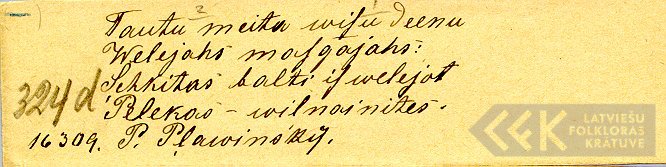 Tautu meita wisu deenu
Welejahs masgajahs:
Sehkitas balti iswelejot
Pelekas – wilnainites.
324d
16309. P. Pļawinskij.
LATVIEŠU
FOLKLORAS
KRĀTUVE